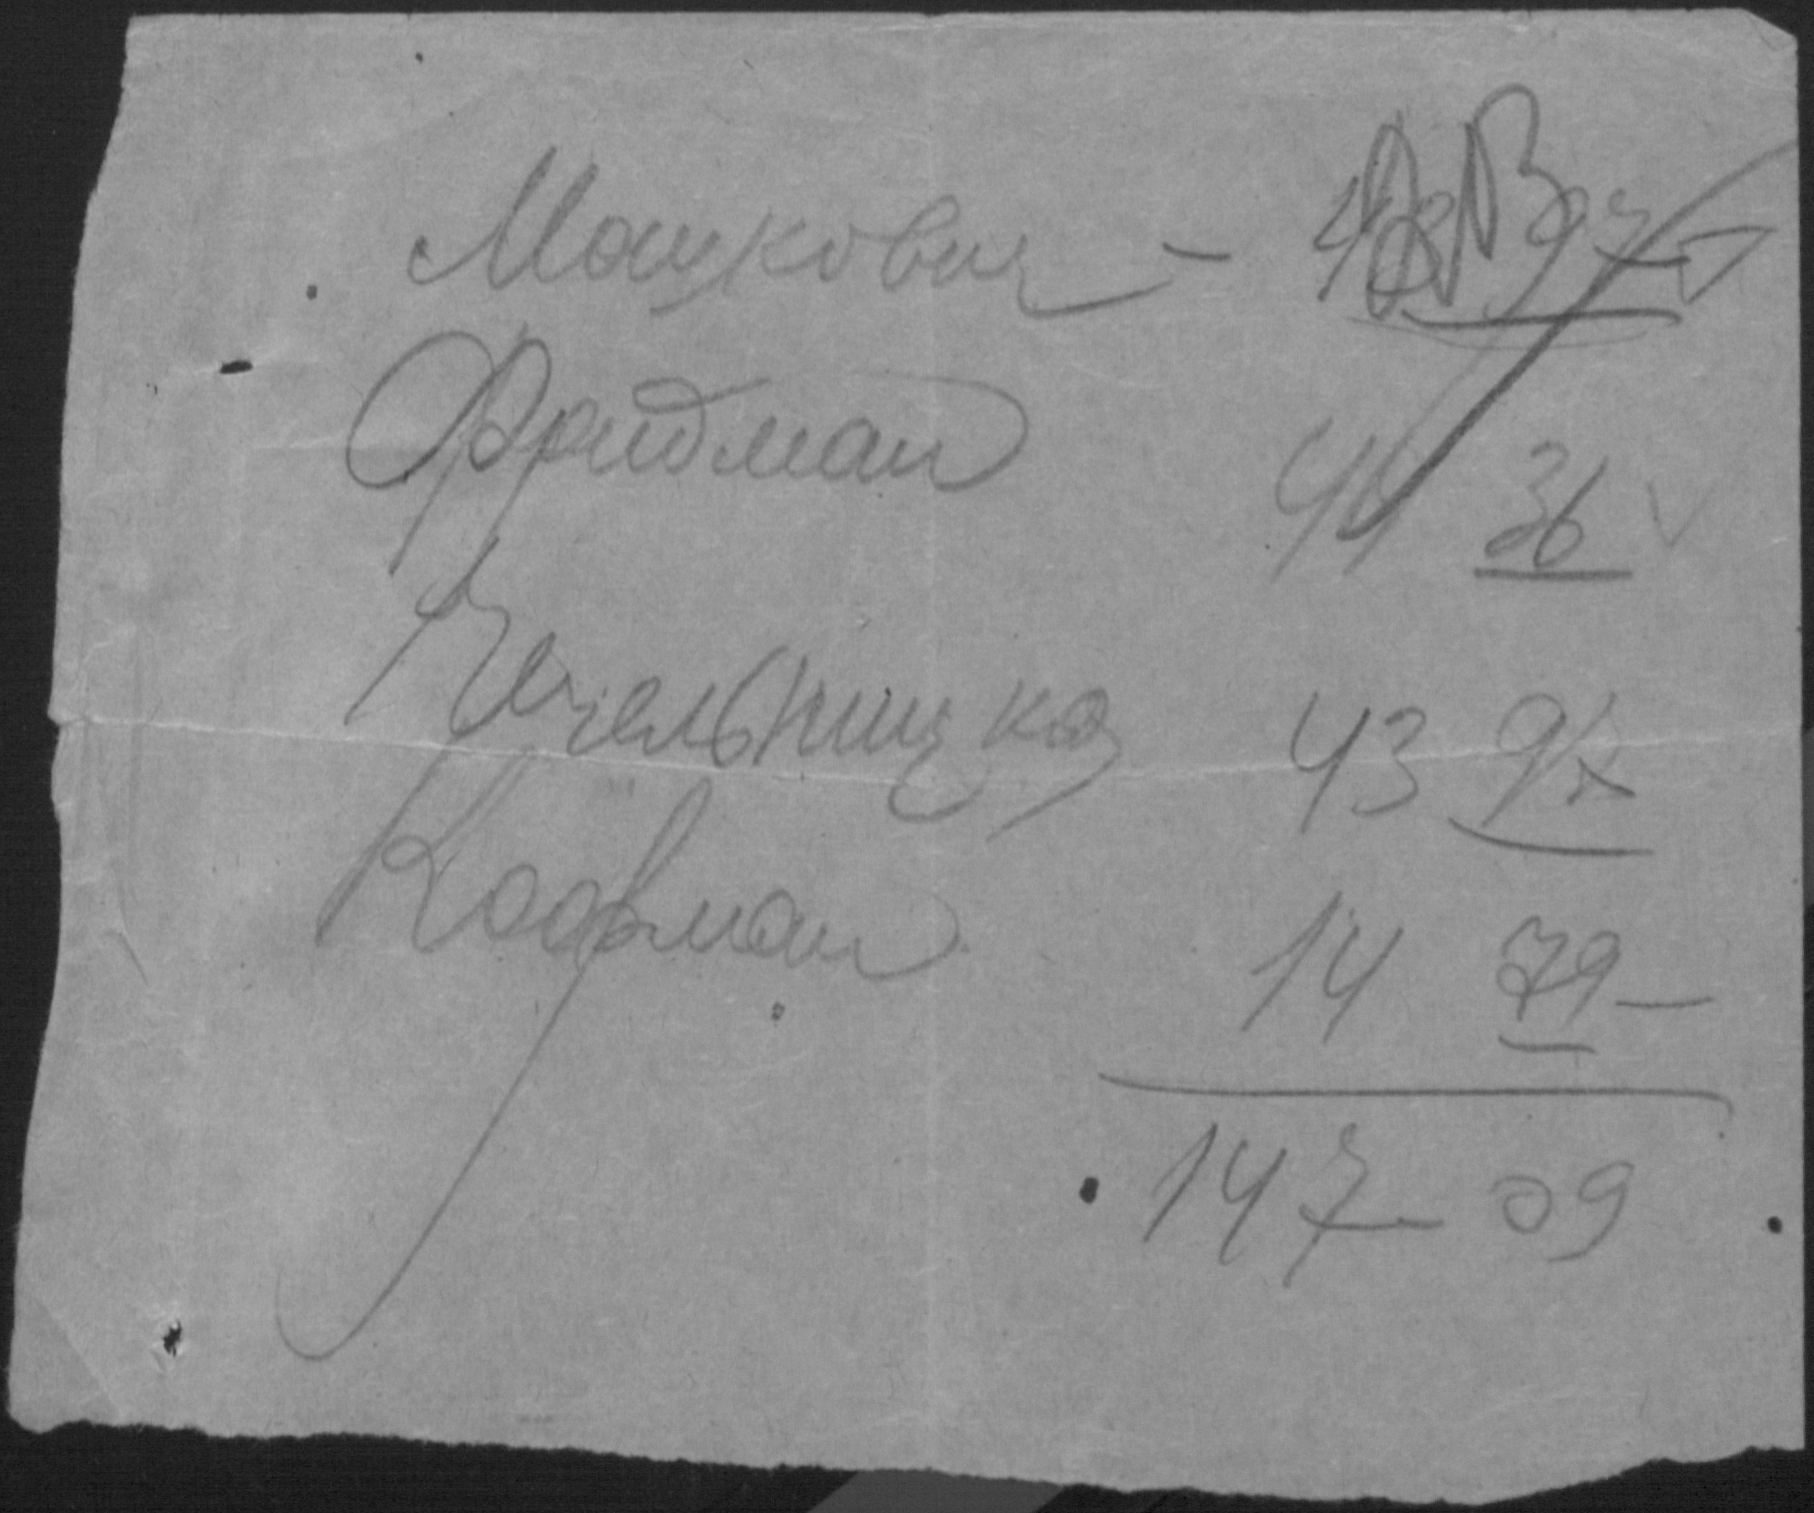 Мацкович - 97
Фридман 44 36 V
Пчельницкая 43 97
Кофман 14 79 -
147 09